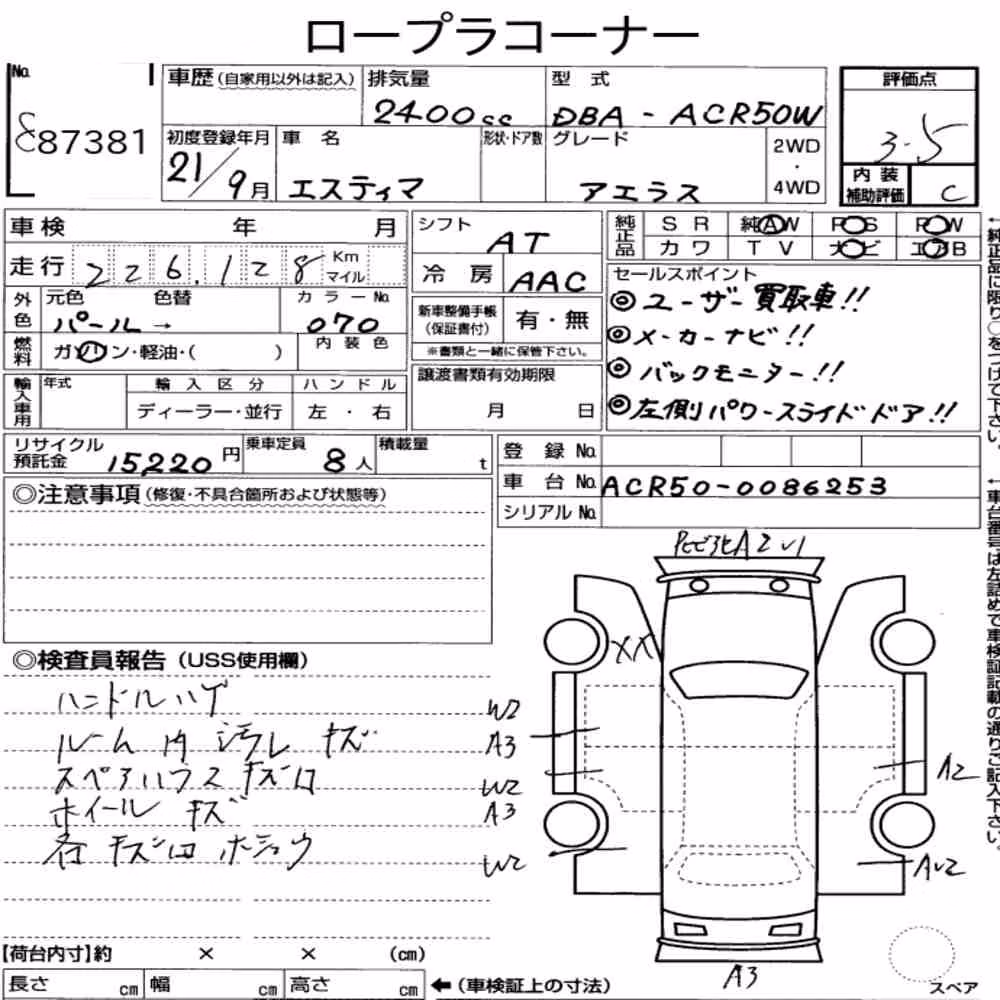 ロープラコーナー
No.
87381
車歴(自家用以外は記入) 排気量 型式
2400cc DBA - ACR50W
初度登録年月 車名 形状・ドア数 グレード 2WD・4WD
21/9月 エスティマ アエラス
評価点
3.5
内装補助評価 C
車検 年 月
走行 226,128 Km マイル
外色 元色 色替 カラーNo.
パール→ 070
燃料 ガソリン・軽油・( ) 内装色
輸入車用 年式 輸入区分 ハンドル
ディーラー・並行 左・右
シフト AT
冷房 AAC
新車整備手帳(保証書付) 有・無
※書類と一緒に保管下さい。
譲渡書類有効期限
月 日
純正品 SR 純AW PS PW
カワ TV ナビ エアB
セールスポイント
◎ユーザー買取車!!
◎メーカーナビ!!
◎バックモニター!!
◎左側パワースライドドア!!
←純正品に限り○をつけて下さい。
リサイクル預託金 15220円 乗車定員 8人 積載量 t
登録No.
車台No. ACR50-0086253
シリアルNo.
←車台番号は左詰めで車検証記載の通りご記入下さい。
◎注意事項(修復・不具合箇所および状態等)
◎検査員報告(USS使用欄)
ハンドルハゲ
ルーム内 汚レ キズ
スペアハウス キズ凹
ホイール キズ
各キズ凹 ホシュウ
A2
XX
W2
A3
W2
A3
W2
A2
AU2
A3
スペア
【荷台内寸】約 × × (cm)
長さ cm 幅 cm 高さ cm ←(車検証上の寸法)